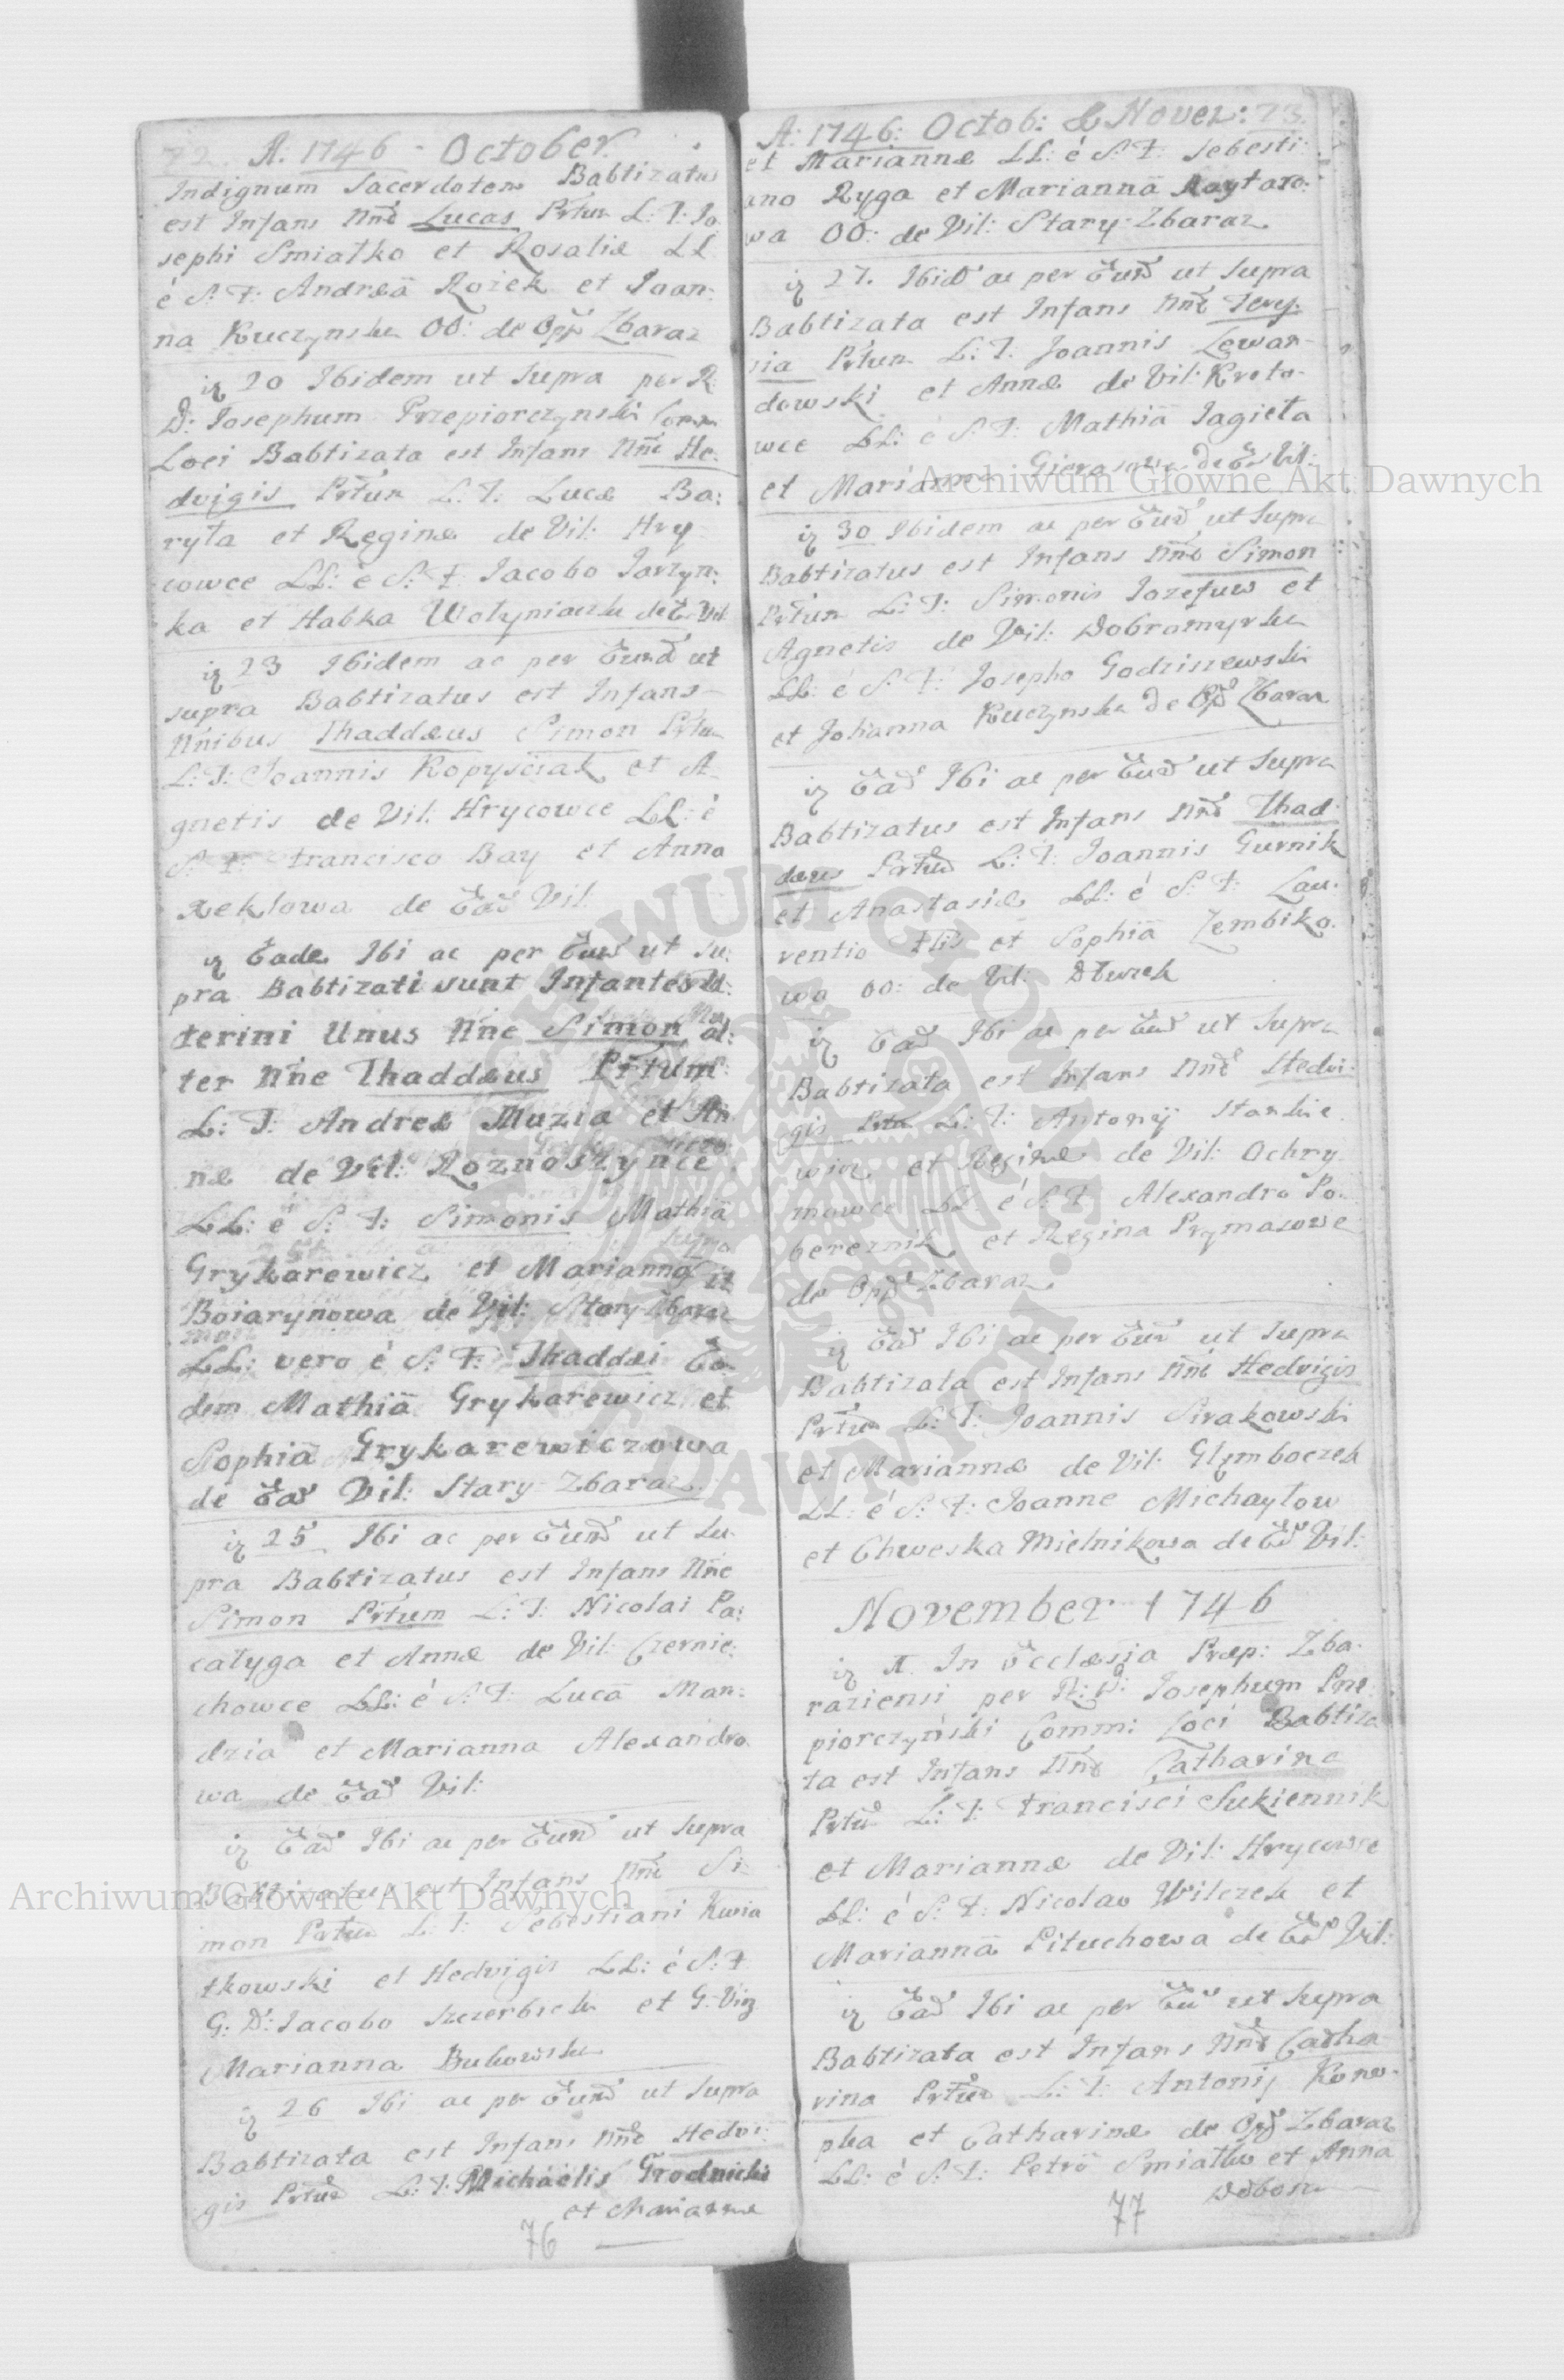 72. A: 1746 - October.
Indignum Sacerdotem Babtizatus
est Infans Nnē Lucas Prtūm L: T: Jo
sephi Smiałko et Rosaliæ LL
é S: F: Andreā Rozek et Joan:
na Kuczynska OO: de Opp Zbaraz
20 Ibidem ut Supra per R:
D: Josephum Przepiorczynski Comm
Loci Babtizata est Infans Nnē He:
dvigis Prtūm L: T: Lucæ Ba:
ryła et Reginæ de Vil: Hry
cowce LL: é S: F: Jacobo Jarzyn:
ka et Habka Wołyniaczka de Vil
23 Ibidem ac per Eund ut
supra Babtizatus est Infans
Nnibus Thaddæus Simon Prtum
L: T: Joannis Kopysciak et A
gnetis de Vil: Hrycowce LL: é
S: F: Francisco Bay et Anna
Feklowa de Ead Vil.
Eade Ibi ac per Eund ut Su:
pra Babtizati sunt Infantes U:
terini Unus Nne Simon, al:
ter Nne Thaddæus Prtum
L: T: Andreæ Muzia et An
næ de Vil: Roznoszynce
LL: é S: F: Simonis Mathiā
Grykarewicz et Marianna
Boiarynowa de Vil: Stary Zbaraz
LL: vero é S: F: Thaddæi Eo
dem Mathiā Grykarewicz et
Sophiā Grykarewiczowa
de Ead Vil: Stary-Zbaraz.
25 Ibi ac per Eund ut Su
pra Babtizatus est Infans Nne
Simon Prtum L: T: Nicolai Pa:
catyga et Annæ de Vil: Czernie:
chowce LL: é S: F: Lucā Man:
dzia et Marianna Alexandro
wa de Ead Vil:
Ead Ibi ac per Eund ut Supra
Babtizatus est Infans Nnē Si
mon Prtum L: T: Sebestiani Kwia
tkowski et Hedvigis LL: é S: F
G: D: Jacobo Szczerbick et G: Virg
Marianna Bukowska
26 Ibi ac per Eund ut Supra
Babtizata est Infans Nnē Hedvi:
gis Prtūm L: T: Michaëlis Grodnicki
et Mariannæ
76
A: 1746: Octob: & Novez: 73.
et Mariannæ LL: é S: F: Sebesti:
ano Ryga et Mariannā Raytaro:
wa OO: de Vil: Stary-Zbaraz
27. Ibid ac per Eund ut Supra
Babtizata est Infans Nnē
Prtum L: T: Joannis Lewan
dowski et Annæ de Vil: Kreto
wce LL: é S: F: Mathiā Jagieła
et Marianna
30 Ibidem ac per Eund ut Supra
Babtizatus est Infans Nnē Simon
Prtum L: T: Simonis Jozefuw et
Agnetis de Vil: Dobromyrka
LL: é S: F: Josepho Godziszewski
et Johanna Kuczynska de Opd Zbaraz
Ead Ibi ac per Eund ut Supra
Babtizatus est Infans Nnē Thad
dæus Prtūm L: T: Joannis Gurnik
et Anastasiæ LL: é S: F: Lau:
rentio et Sophiā Zembiko
wa OO: de Vil:
Ead Ibi ac per Eund ut Supra
Babtizata est Infans Nnē Hedvi
gis Prtum L: T: Antonij Stankie
wicz et Reginæ de Vil: Ochry
mowce LL é S: F: Alexandro Po
bereznik et Regina Prymasowe
de Opd Zbaraz.
Ead Ibi ac per Eund ut Supra
Babtizata est Infans Nnē Hedvigis
Prtūm L: T: Joannis Sirakowski
et Mariannæ de Vil: Glęmboczek
LL: é S: F: Joanne Michayłow
et Chweska Mielnikowa de Ed Vil:
November 1746
In Ecclæsia Præp: Zba
raziensi per R: D: Josephum Prze
piorczyński Comm: Loci Babtiza
ta est Infans Nnē Catharina
Prtūm L: T: Francisci Sukiennik
et Mariannæ de Vil: Hrycowce
LL: é S: F: Nicolao Wilczek et
Mariannā Pituchowa de Ead Vil:
Ead Ibi ac per Eu ut Supra
Babtizata est Infans Nnē Catha
rina Prtūm L: T: Antonij Konw
pka et Catharinæ de Opd Zbaraz
LL: é S: F: Petrō Smiałko et Anna
77
Archiwum Główne Akt Dawnych
Archiwum Główne Akt Dawnych
ARCHIWUM GŁÓWNE AKT DAWNYCH